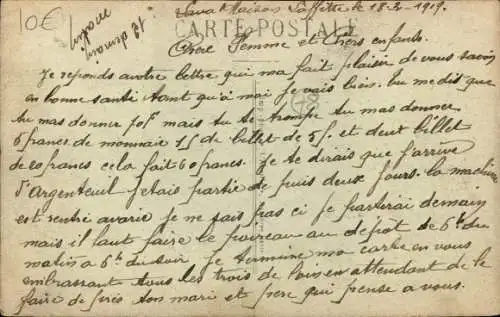 10€
12 demain
matin
CARTE POSTALE
Maisons Laffitte le 18-3-1919.
Chère Femme et Chers enfants.
Je reponds a votre lettre qui ma fait plaisir de vous savoir
en bonne santé tant qu'a moi je vais bien. tu me dis que
tu mas donner 70f mais tu te trompe tu mas donner
5 francs de monnaie 15 de billet de 5f et deux billet
de 20 francs cela fait 60 francs. Je te dirais que j'arrive
d'Argenteuil j'etais partie de puis deux jours. la machine
est rentré avarie je ne sais pas ci je partirai demain
mais il faut faire le poireau au dépôt de 6h du
matin a 6h du soir je termine ma carte en vous
embrassant tous les trois de loin en attendant de le
faire de près ton mari et pere qui pense a vous.